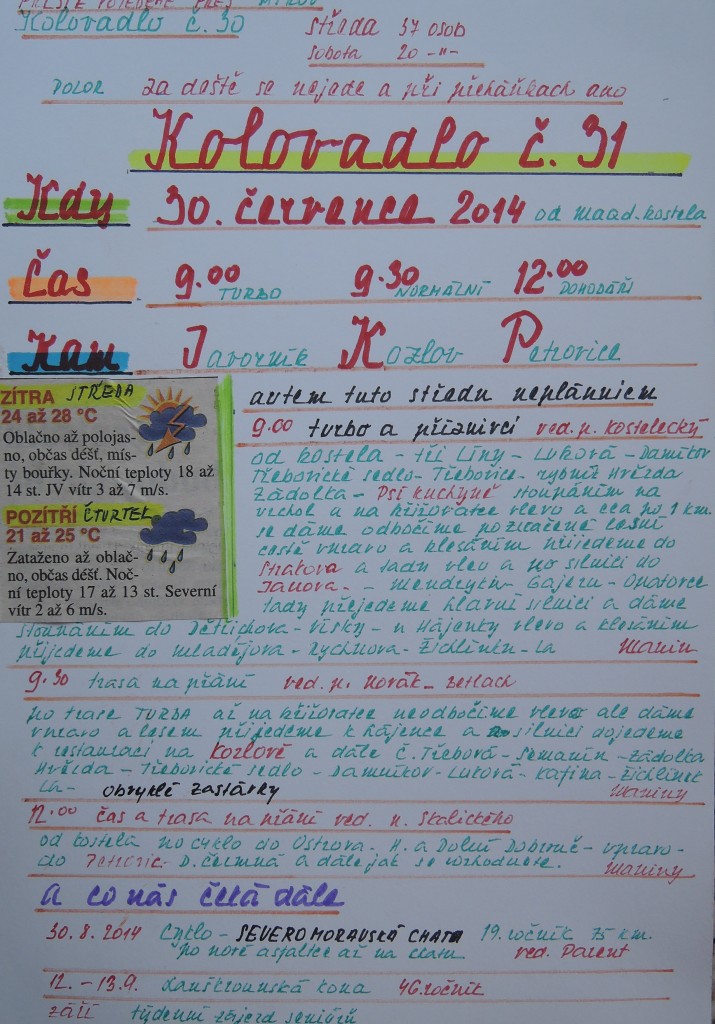 PŘÍŠTĚ POJEDEME PŘES
Kolovadlo č. 30 středa 37 osob
sobota 20 -"-
za deště se nejede a při přeháňkách ano
Kolovadlo č. 31
Kdy 30. července 2014 od Maad. kostela
Čas 9.00 TURBO 9.30 NORMÁLNÍ 12.00 POHODÁŘI
Kam Javorník Kozlov Petrovice
ZÍTRA STŘEDA
24 až 28 °C
Oblačno až polojas-
no, občas déšť, mís-
ty bouřky. Noční teploty 18 až
14 st. JV vítr 3 až 7 m/s.
POZÍTŘÍ ČTVRTEK
21 až 25 °C
Zataženo až oblač-
no, občas déšť. Noč-
ní teploty 17 až 13 st. Severní
vítr 2 až 6 m/s.
autem tuto středu neplánujem
9.00 turbo a příznivci ved. p. Kostelecký
od kostela - tři Lípy - Luková - Damníkov
Třebovické sedlo - Třebovice - rybník Hvězda
Zádolka - Psí kuchyně stoupáním na
vrchol a na křižovatce vlevo a cca po 1 km.
se dáme odbočíme po značené lesní
cestě vpravo a klesáním přijedeme do
Strakova a tady vlevo a po silnici do
Janova. - Mendryka - Gajeru - Opatovce
tady přejedeme hlavní silnici a dáme
stoupáním do Dětřichova - Vísky - u Hájenky vlevo a klesáním
přijedeme do Mladějova - Rychnova - Žichlínku - La
9.30 trasa na přání ved. p. Novák -
po trase TURBA až na křižovatce neodbočíme vlevo ale dáme
vpravo a lesem přijedeme k hájence a po silnici dojedeme
k restauraci na Kozlově a dále Č. Třebová - Semanín - Zádolka
Hvězda - Třebovické sedlo - Damníkov - Luková - - Žichlínek
La - obvyklé zastávky Maniny
12.00 čas a trasa na přání ved. p. Skalického
od kostela po cyklo do Ostrova - H. a Dolní Dobrouč - vpravo -
do Petrovic - D. Čermná a dále jak se rozhodnete. Maniny
a co nás čeká dále
30. 8. 2014 Cyklo - SEVEROMORAVSKÁ CHATA 19. ročník 75 km.
po nové asfaltce až na chatu ved. Parent
12. - 13.9. Lanškrounská kopa 46. ročník
září týdenní zájezd seniorů